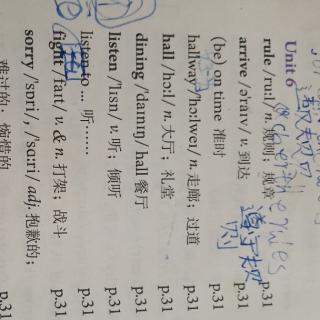 Unit 6
rule /ruːl/ n. 规则；规章 p.31
arrive /ə'raɪv/ v. 到达 p.31
(be) on time 准时 p.31
hallway /'hɔːlweɪ/ n. 走廊；过道 p.31
hall /hɔːl/ n. 大厅；礼堂 p.31
dining /'daɪnɪŋ/ hall 餐厅 p.31
listen /'lɪsn/ v. 听；倾听 p.31
listen to … 听…… p.31
fight /faɪt/ v. & n. 打架；战斗 p.31
sorry /'sɒri/, /'sɑːri/ adj. 抱歉的； p.31
难过的；惋惜的